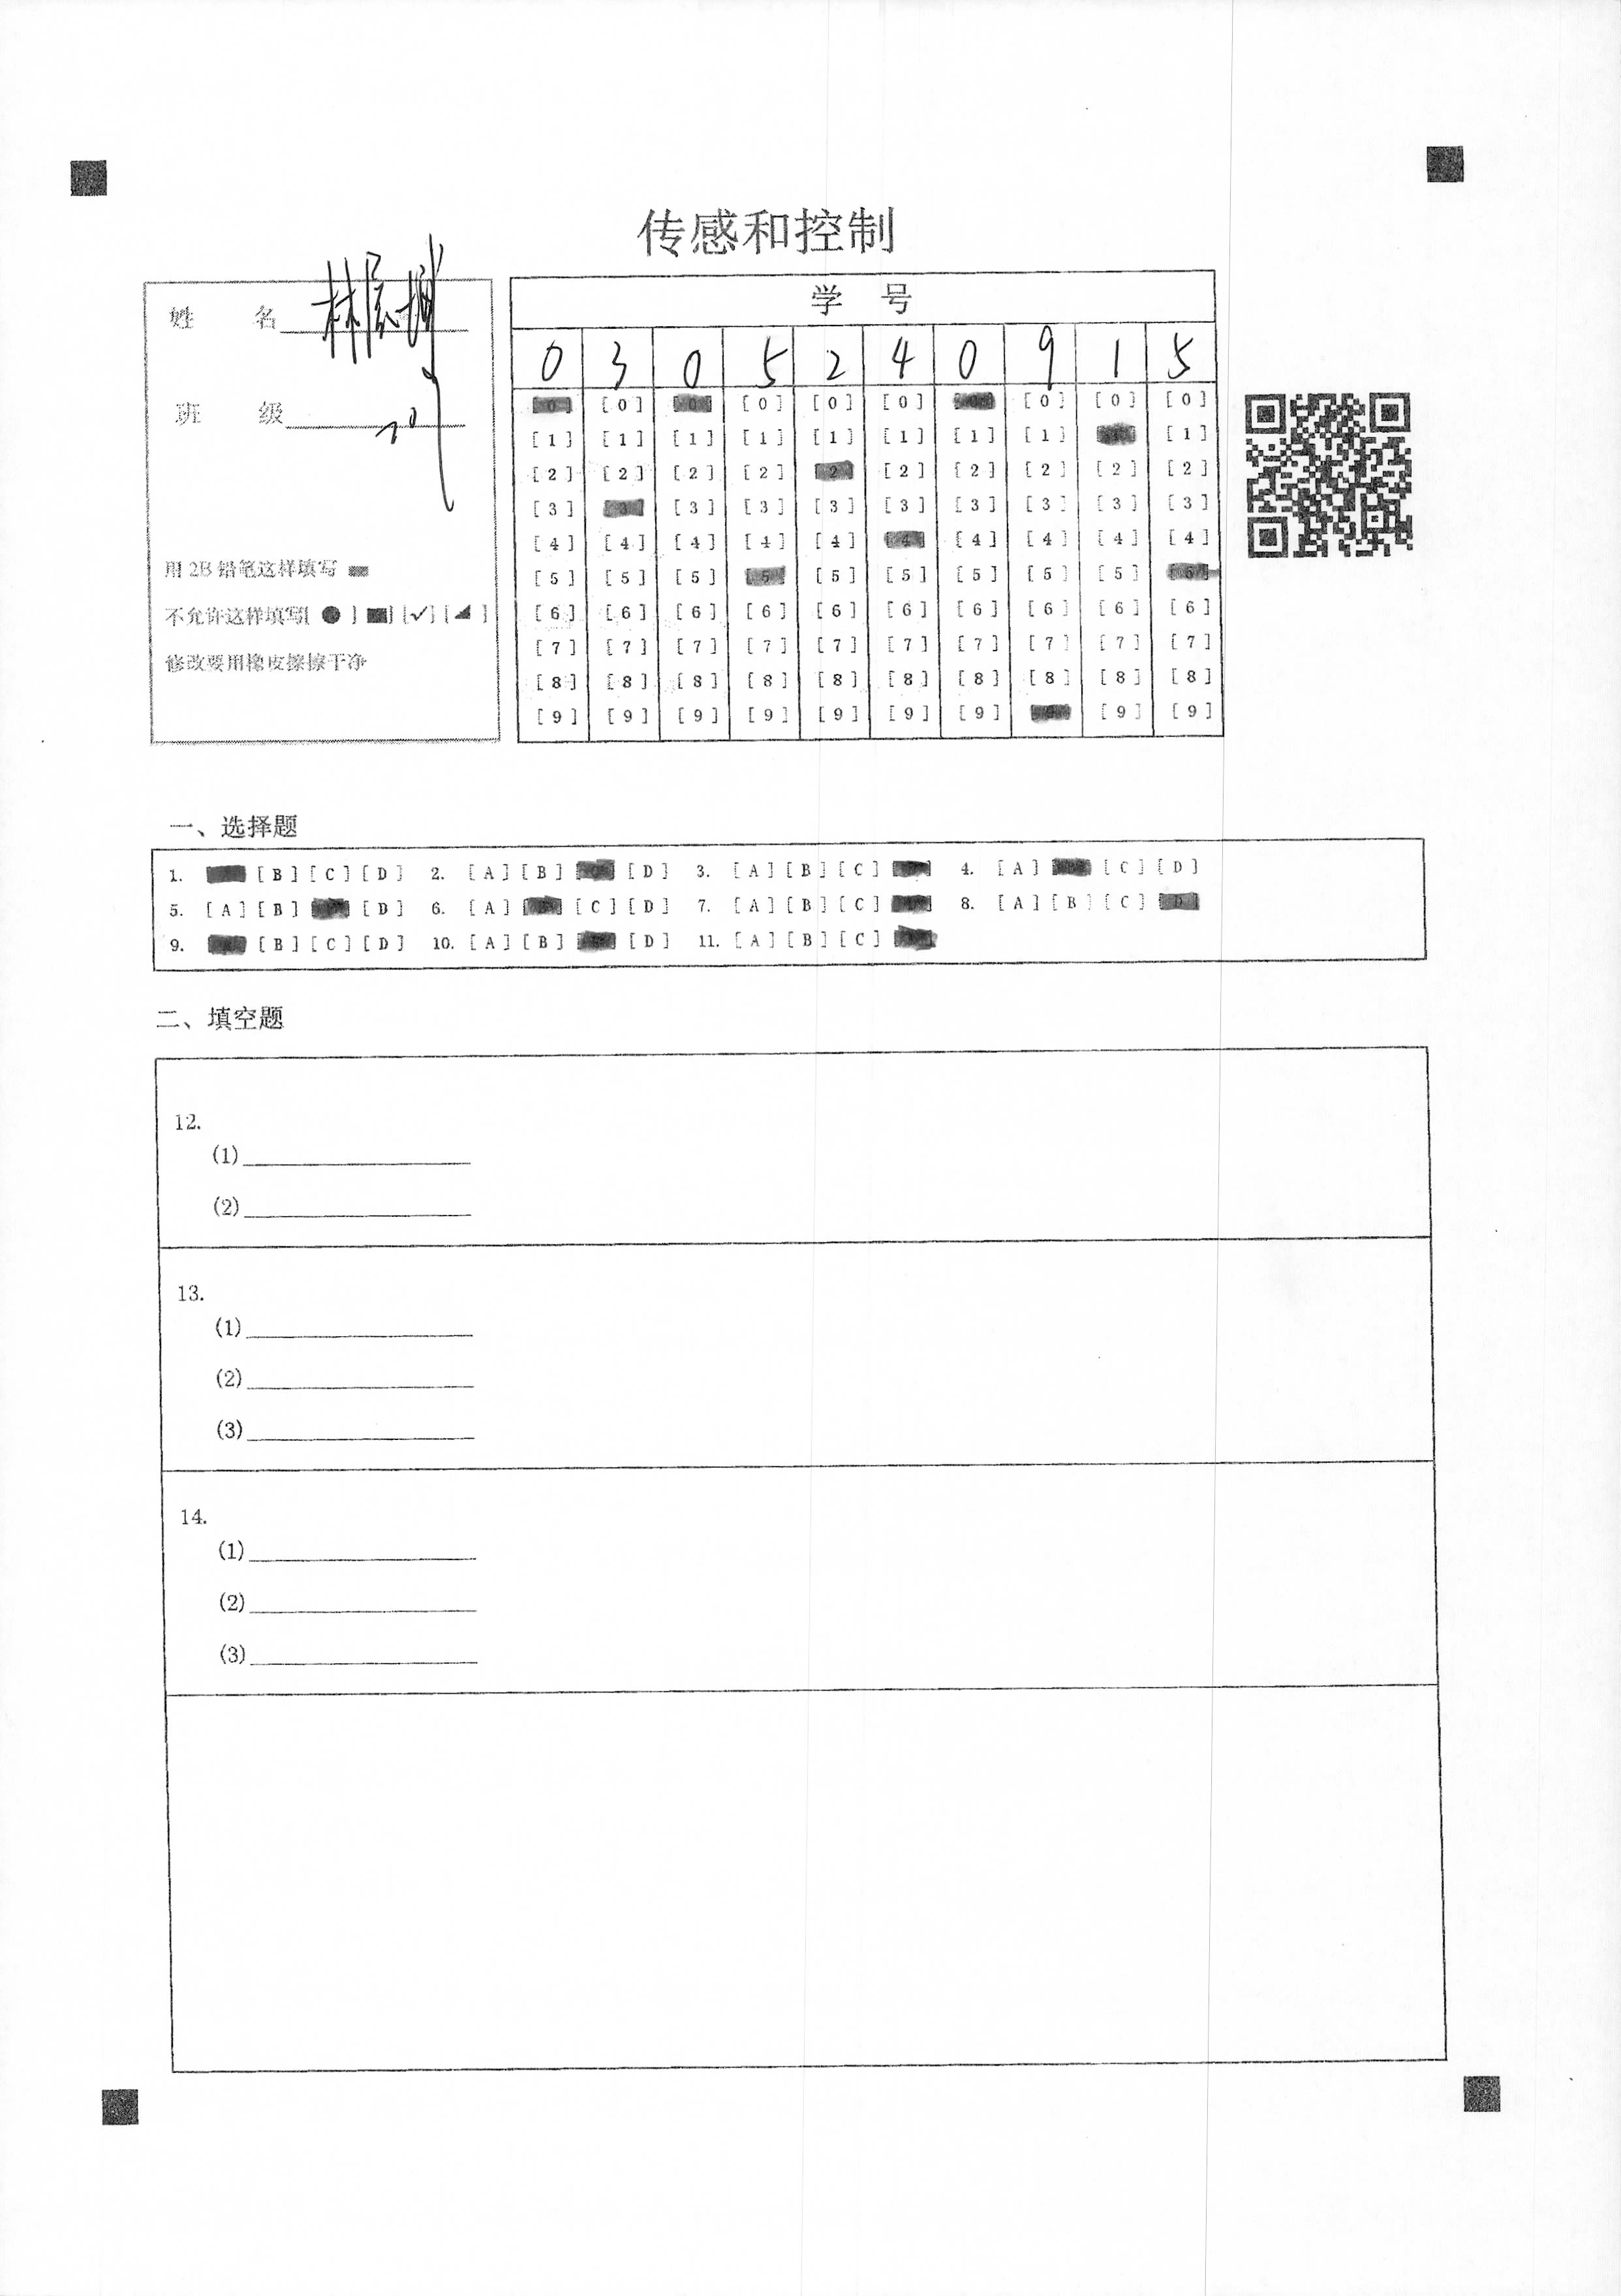 传感和控制
姓 名 林辰
班 级 20
用 2B 铅笔这样填写
不允许这样填写[ ● ] [■] [✓] [◢ ]
修改要用橡皮擦擦干净
学 号
0 3 0 5 2 4 0 9 1 5
[0] [0] [0] [0] [0] [0] [0] [0] [0] [0]
[1] [1] [1] [1] [1] [1] [1] [1] [1] [1]
[2] [2] [2] [2] [2] [2] [2] [2] [2] [2]
[3] [3] [3] [3] [3] [3] [3] [3] [3] [3]
[4] [4] [4] [4] [4] [4] [4] [4] [4] [4]
[5] [5] [5] [5] [5] [5] [5] [5] [5] [5]
[6] [6] [6] [6] [6] [6] [6] [6] [6] [6]
[7] [7] [7] [7] [7] [7] [7] [7] [7] [7]
[8] [8] [8] [8] [8] [8] [8] [8] [8] [8]
[9] [9] [9] [9] [9] [9] [9] [9] [9] [9]
一、选择题
1. [B] [C] [D] 2. [A] [B] [D] 3. [A] [B] [C] 4. [A] [C] [D]
5. [A] [B] [D] 6. [A] [C] [D] 7. [A] [B] [C] 8. [A] [B] [C] [D]
9. [B] [C] [D] 10. [A] [B] [D] 11. [A] [B] [C]
二、填空题
12.
(1)
(2)
13.
(1)
(2)
(3)
14.
(1)
(2)
(3)